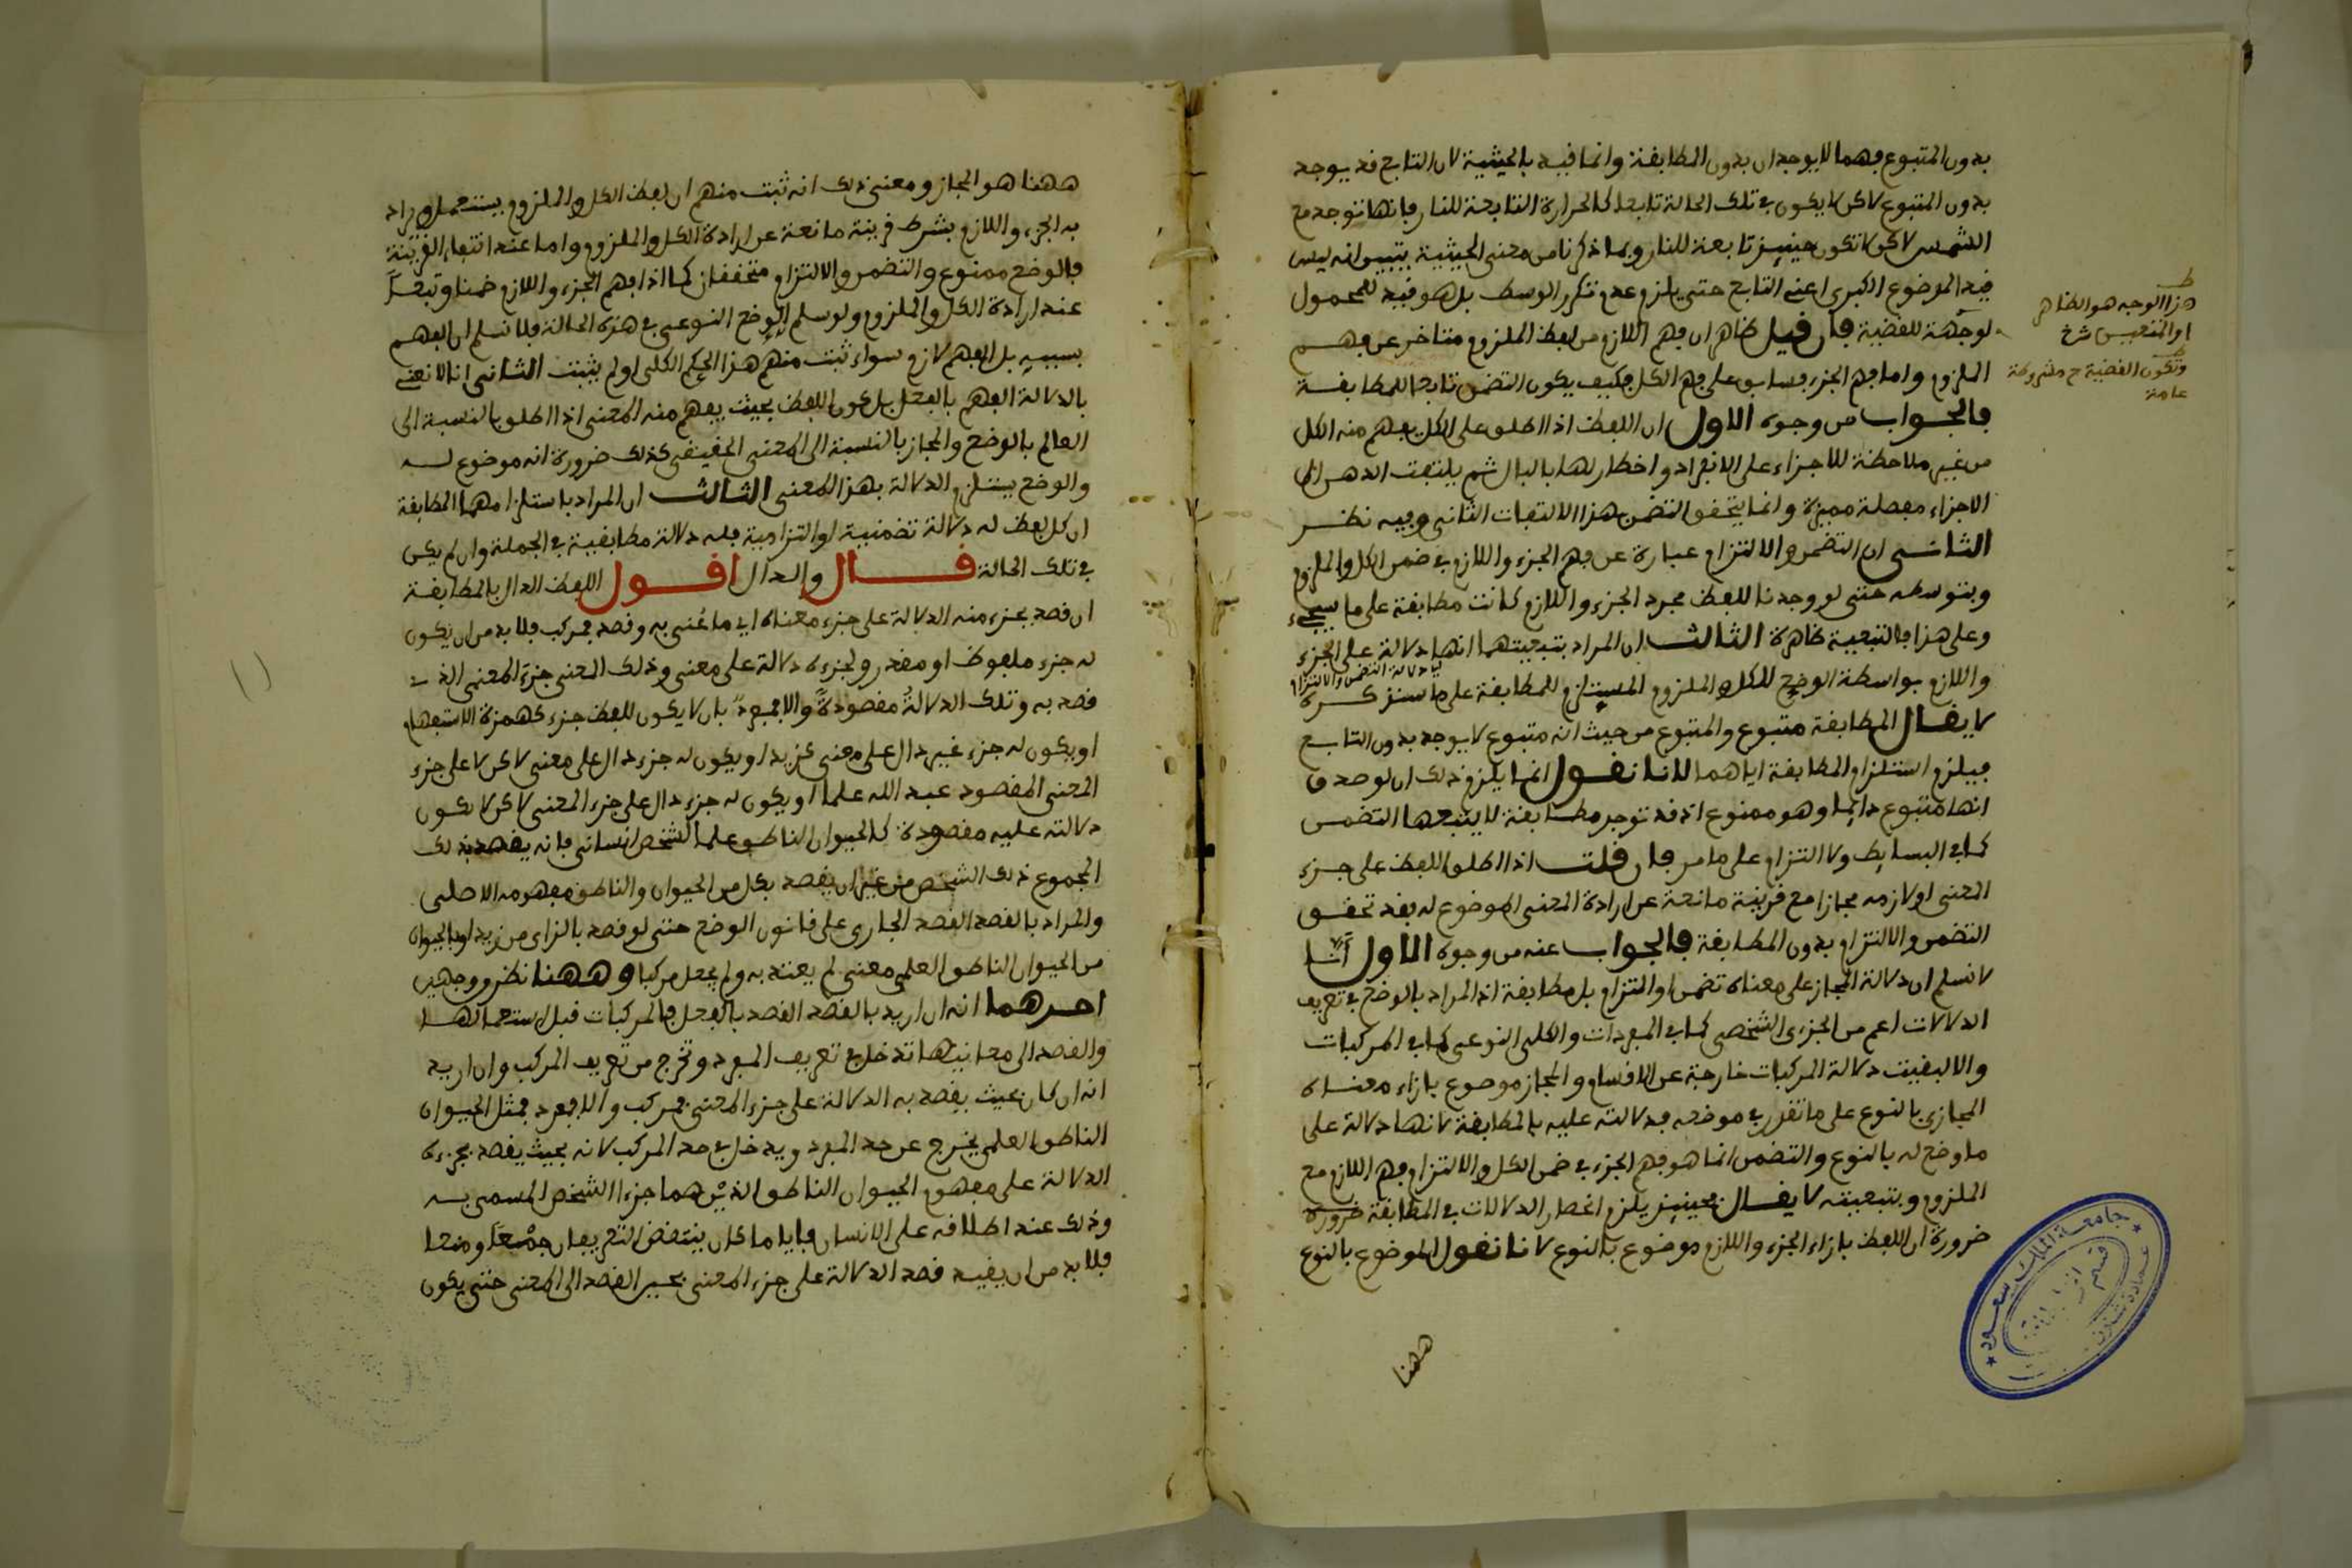 بدون المتبوع فهما لا يوجدان بدون المطابقة وانما قيد بالحيثية لان التابع قد يوجد
بدون المتبوع لاكن لا يكون في تلك الحالة تابعا كالحرارة التابعة للنار فانها توجد مع
الشمس لاكن لا تكون حينيذ تابعة للنار وبما ذكرنا من معنى الحيثية يتبين انه ليس
قيد الموضوع الكبرى اعني التابع حتى يلزم عدم تكرر الوسط بل هو قيد للمحمول
او جهة للقضية فان قيل ظاهر ان فهم اللازم من لفظ الملزوم متاخر عن فهم
الملزوم واما فهم الجزء فسابق على فهم الكل فكيف يكون التضمن تابعا للمطابقة
فالجواب من وجوه الاول ان اللفظ اذا اطلق على الكل يفهم منه الكل
من غير ملاحظة للاجزاء على الانفراد واخطارها بالبال ثم يلتفت الذهن الى
الاجزاء مفصلة مميزة وانما يتحقق التضمن هذا الالتفات الثاني وفيه نظر
الثاني ان التضمن والالتزام عبارة عن فهم الجزء واللازم في ضمن الكل والملزوم
وبتوسطه حتى لو وجدنا للفظ مجرد الجزء واللازم كانت مطابقة على ما سيجيء
وعلى هذا فالتبعية ظاهرة الثالث ان المراد بتبعيتهما انها دلالة على الجزء
اي دلالة التضمن والالتزام
واللازم بواسطة الوضع للكل والملزوم المستلزم للمطابقة على ما سنذكره
لا يقال المطابقة متبوع والمتبوع من حيث انه متبوع لا يوجد بدون التابع
فيلزم استلزام المطابقة اياهما لانا نقول انما يلزم ذلك ان لو صدق
انها متبوع دايما وهو ممنوع اذ قد توجد مطابقة لا يتبعها التضمن
كما في البسايط ولا التزام على ما مر فان قلت اذا اطلق اللفظ على جزء
المعنى او لازمه مجازا مع قرينة مانعة عن ارادة المعنى الموضوع له فقد تحقق
التضمن والالتزام بدون المطابقة فالجواب عنه من وجوه الاول انا
لا نسلم ان دلالة المجاز على معناه تضمن او التزام بل مطابقة اذ المراد بالوضع في تعريف
الدلالات اعم من الجزي الشخصي كما في المفردات والكلي النوعي كما في المركبات
والا لبقيت دلالة المركبات خارجة عن الاقسام والمجاز موضوع بازاء معناه
المجازي بالنوع على ما تقرر في موضعه فدلالته عليه بالمطابقة لانها دلالة على
ما وضع له بالنوع والتضمن انما هو فهم الجزء في ضمن الكل والالتزام فهم اللازم مع
الملزوم وبتبعيته لا يقال فحينيذ يلزم انحصار الدلالات في المطابقة ضرورة
ضرورة ان اللفظ بازاء الجزء واللازم موضوع بالنوع لانا نقول الموضوع بالنوع
ههنا
هذا الوجه هو الظاهر
وتكون القضية ح مشروطة
عامة
جامعة الملك سعود
قسم
ههنا هو المجاز ومعنى ذلك انه ثبت منهم ان لفظ الكل والملزوم يستعمل ويراد
به الجزء واللازم بشرط قرينة مانعة عن ارادة الكل والملزوم واما عند انتفاء القرينة
فالوضع ممنوع والتضمن والالتزام متحققان كما اذا فهم الجزء واللازم ضمنا وتبعا
عند ارادة الكل والملزوم ولو سلم الوضع النوعي في هذه الحالة فلا نسلم ان الفهم
بسببه بل الفهم لازم سواء ثبت منهم هذا الحكم الكلي او لم يثبت الثاني انا لا نعني
بالدلالة الفهم بالفعل بل كون اللفظ بحيث يفهم منه المعنى اذا اطلق بالنسبة الى
العالم بالوضع والمجاز بالنسبة الى المعنى الحقيقي كذلك ضرورة انه موضوع له
والوضع يستلزم الدلالة بهذا المعنى الثالث ان المراد باستلزامهما المطابقة
ان كل لفظ له دلالة تضمنية او التزامية فله دلالة مطابقية في الجملة وان لم يكن
في تلك الحالة قال والدال اقول اللفظ الدال بالمطابقة
ان قصد بجزء منه الدلالة على جزء معناه اي ما عنى به وقصد فمركب فلا بد من ان يكون
له جزء ملفوظ او مقدر ولجزءه دلالة على معنى وذلك المعنى جزء المعنى الذي
قصد به وتلك الدلالة مقصودة والا فمفرد بان لا يكون للفظ جزء كهمزة الاستفهام
او يكون له جزء غير دال على معنى كزيد او يكون له جزء دال على معنى لاكن لا على جزء
المعنى المقصود عبد الله علما او يكون له جزء دال على جزء المعنى لاكن لا تكون
دلالته عليه مقصودة كالحيوان الناطق علما لشخص انساني فانه يقصد بذلك
المجموع ذلك الشخص من غير ان يقصد بكل من الحيوان والناطق مفهومه الاصلي
والمراد بالقصد القصد الجاري على قانون الوضع حتى لو قصد بالزاي من زيد او بالحيوان
من الحيوان الناطق العلمي معنى لم يعتد به ولم يجعل مركبا وههنا نظر ووجهين
احدهما انه ان اريد بالقصد القصد بالفعل فالمركبات قبل استعمالها
والقصد الى معانيها تدخل في تعريف المفرد وتخرج من تعريف المركب وان اريد
انه ان كان بحيث يقصد به الدلالة على جزء المعنى فمركب والا فمفرد فمثل الحيوان
الناطق العلمي يخرج عن حد المفرد ويدخل في حد المركب لانه بحيث يقصد بجزءه
الدلالة على مفهوم الحيوان الناطق الذين هما جزءا الشخص المسمى به
وذلك عند اطلاقه على الانسان فايا ما كان ينتقض التعريفان جمعا ومنعا
فلا بد من ان يقيد قصد الدلالة على جزء المعنى بحين القصد الى المعنى حتى يكون